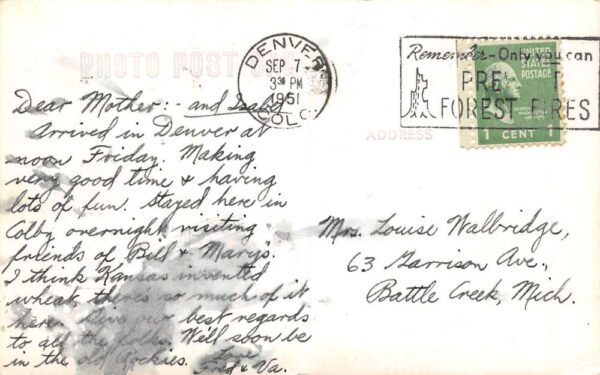 PHOTO POST
DENVER
SEP 7
3 30 PM
1951
COLO.
Remember-Only you can
PRE
FOREST FIRES
UNITED
STATES
POSTAGE
1 CENT 1
ADDRESS
Dear Mother:- and Isabel
Arrived in Denver at
noon Friday. Making
very good time & having
lots of fun. Stayed here in
Colby overnight visiting
friends of Bill & Mary's.
I think Kansas invented
wheat, there's so much of it
here. Give our best regards
to all the folks. We'll soon be
in the old Rockies. Love
Fred & Va.
Mrs. Louise Walbridge,
63 Garrison Ave.,
Battle Creek, Mich.